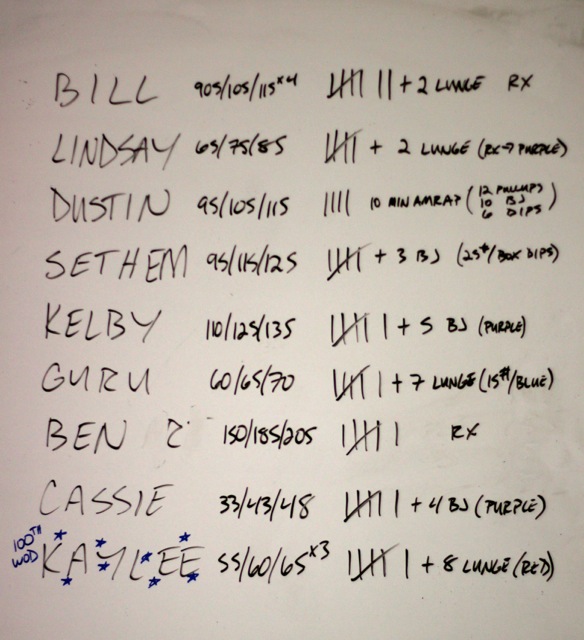 BILL 90s/105/115x4 卌 II + 2 LUNGE RX
LINDSAY 65/75/85 卌 + 2 LUNGE (RX→PURPLE)
DUSTIN 95/105/115 IIII 10 MIN AMRAP (12 PULLUPS 10 BJ 6 DIPS)
SETHEM 95/115/125 卌 + 3 BJ (25#/BOX DIPS)
KELBY 110/125/135 卌 I + 5 BJ (PURPLE)
GURU 60/65/70 卌 I + 7 LUNGE (15#/BLUE)
BEN Z 150/185/205 卌 I RX
CASSIE 33/43/48 卌 I + 4 BJ (PURPLE)
100TH WOD KAYLEE 55/60/65x3 卌 I + 8 LUNGE (RED)